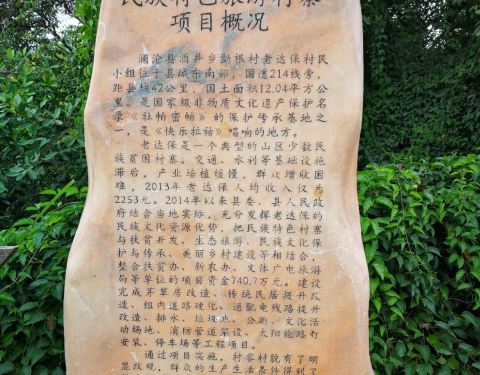 民族特色旅游村寨
项目概况
澜沧县酒井乡勐根村老达保村民
小组位于县城东南部，国道214线旁，
距县城42公里，国土面积12.04平方公
里，是国家级非物质文化遗产保护名
录《牡帕密帕》的保护传承基地之
一，是《快乐拉祜》唱响的地方。
老达保是一个典型的山区少数民
族贫困村寨。交通、水利等基础设施
滞后，产业培植缓慢，群众增收困
难，2013年老达保人均收入仅为
2253元。2014年以来县委、县人民政
府结合当地实际，充分发挥老达保的
民族文化资源优势，把民族特色村寨
与扶贫开发、生态旅游、民族文化保
护与传承、美丽乡村建设等相结合，
整合扶贫办、新农办、文体广电旅游
局等单位的项目资金740.7万元。建设
完成茅草房改造、传统民居提升改
造、组内道路硬化、通配电线路提升
改造、排水、垃圾池、公厕、文化活
动场地、消防管道架设、太阳能路灯
安装、停车场等工程项目。
通过项目实施，村容村貌有了明
显改观，群众的生产生活条件得到了